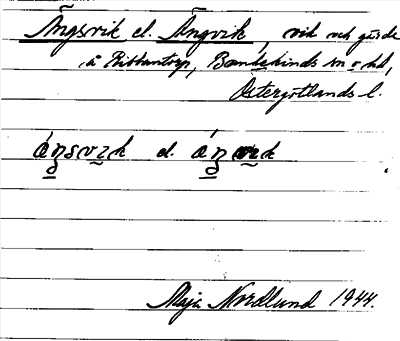 Ängsvik el. Ängvik, vik och gärde
å Ribbantorp, Bankekinds sn o. hd,
Östergötlands l.
ángsvik el. ángvik
Maja Nordlund 1944.